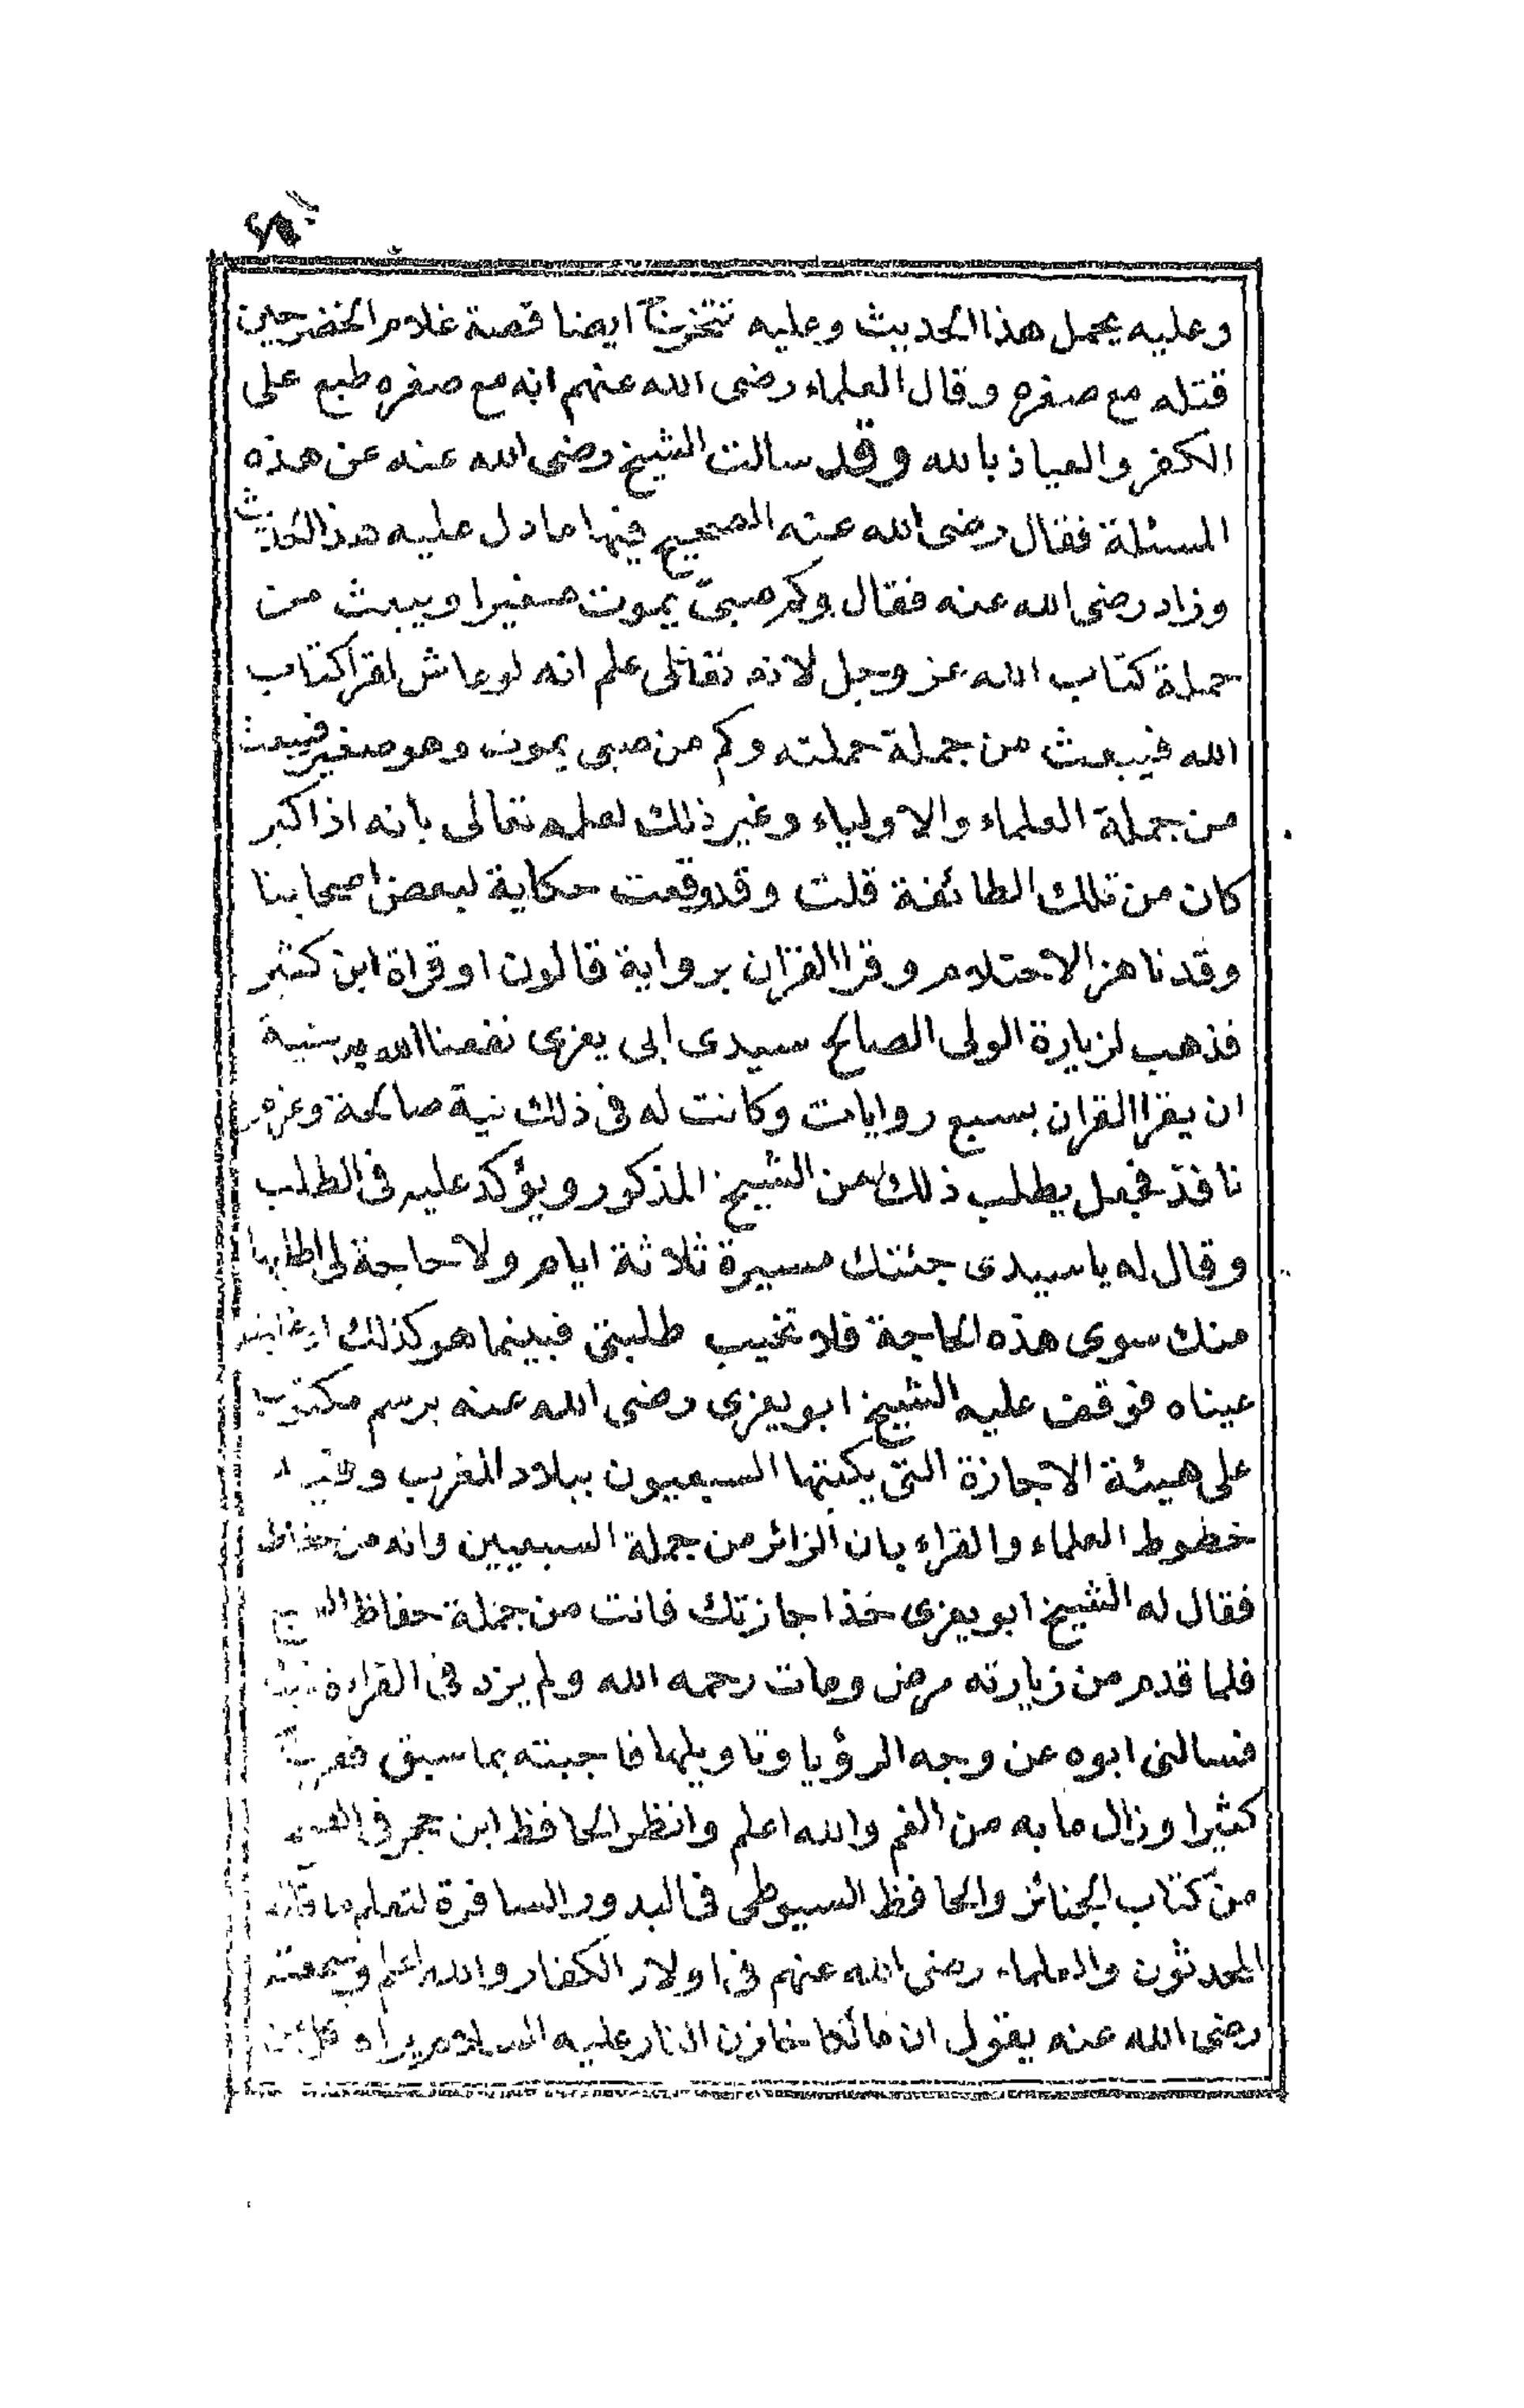 وعليه يحمل هذا الحديث وعليه تتخرج ايضا قصة غلام الخضر حين
قتله مع صغره وقال العلماء رضى الله عنهم انه مع صغره طبع على
الكفر والعياذ بالله وقد سالت الشيخ رضى الله عنه عن هذه
المسئلة فقال رضى الله عنه الصحيح فيها مادل عليه هذا الحديث
وزاد رضى الله عنه فقال وكم صبىّ يموت صغيرا ويبعث من
حملة كتاب الله عز وجل لانه تعالى علم انه لو عاش لقرا كتاب
الله فيبعث من جملة حملته وكم من صبى يموت وهو صغير فيبعث
من جملة العلماء والاولياء وغير ذلك لعلمه تعالى بانه اذا كبر
كان من تلك الطائفة قلت وقد وقعت حكاية لبعض اصحابنا
وقد ناهز الاحتلام وقرا القران برواية قالون او قراة ابن كثير
فذهب لزيارة الولى الصالح سيدى ابى يعزى نفعنا الله به بنية
ان يقرا القران بسبع روايات وكانت له فى ذلك نية صالحة وعزم
نافذ فجعل يطلب ذلك من الشيخ المذكور ويؤكد عليه فى الطلب
وقال له ياسيدى جئتك مسيرة ثلاثة ايام ولا حاجة لى اطلبها
منك سوى هذه الحاجة فلا تخيب طلبتى فبينما هو كذلك اذ غلبته
عيناه فوقف عليه الشيخ ابو يعزى رضى الله عنه برسم مكتوب
على هيئة الاجازة التى يكتبها السبعيون ببلاد المغرب وفيه
خطوط العلماء والقراء بان الزائر من جملة السبعيين وانه من حفاظ
فقال له الشيخ ابو يعزى خذ اجازتك فانت من جملة حفاظ السبع
فلما قدم من زيارته مرض ومات رحمه الله ولم يزد فى القراءة
فسالنى ابوه عن وجه الرؤيا وتاويلها فاجبته بما سبق ففرح
كثيرا وزال مابه من الغم والله اعلم وانظر الحافظ ابن حجر فى
من كتاب الجنائز والحافظ السيوطى فى البدور السافرة لتعلم ماقاله
المحدثون والعلماء رضى الله عنهم فى اولاد الكفار والله اعلم وسمعته
رضى الله عنه يقول ان مالكا خازن النار عليه السلام